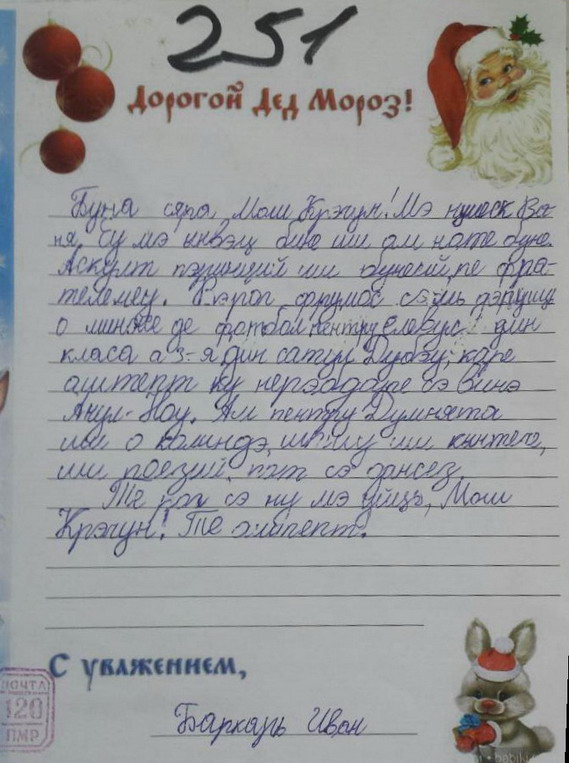 251
Дорогой Дед Мороз!
Буна сяра Мош Крэчун! Мэ нумеск Ва-
ня. Еу мэ ынвэц бине ши ам ноте буне.
Аскулт пэринций ши бунеий, пе фра-
телемеу. Те рог фрумос сэ-мь дэруешь
о минӂе де фотбол пентру елевул дин
класа а 3-я дин сатул Дубэу, каре
аштепт ку нерэбдаре сэ винэ
Анул-Ноу. Ам пентру Думнята
ши о колиндэ, ши ши кынтече,
ши поезий, пот сэ дансез.
Те рог сэ ну мэ уйць, Мош
Крэчун! Те аштепт.
С уважением,
Баркарь Иван
ПОЧТА
120
ПМР